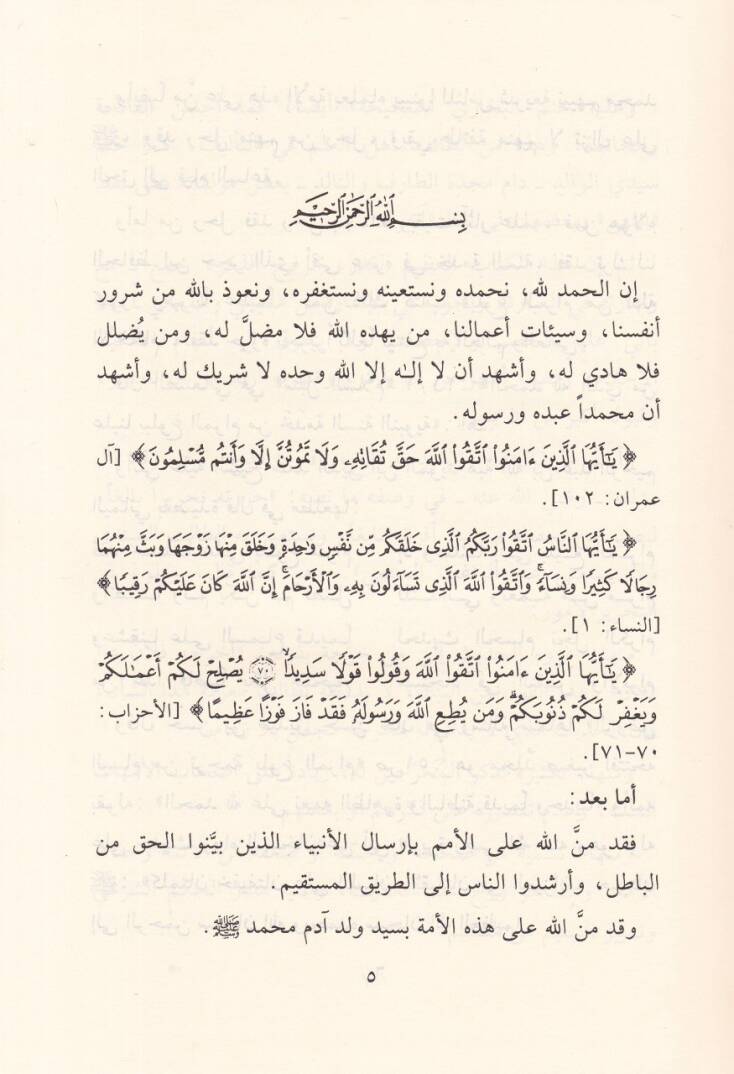 بِسْمِ ٱللَّهِ ٱلرَّحْمَٰنِ ٱلرَّحِيمِ
إن الحمد لله، نحمده ونستعينه ونستغفره، ونعوذ بالله من شرور
أنفسنا، وسيئات أعمالنا، من يهده الله فلا مضلَّ له، ومن يُضلل
فلا هادي له، وأشهد أن لا إلـٰه إلا الله وحده لا شريك له، وأشهد
أن محمداً عبده ورسوله.
﴿ يَـٰٓأَيُّهَا ٱلَّذِينَ ءَامَنُوا۟ ٱتَّقُوا۟ ٱللَّهَ حَقَّ تُقَاتِهِۦ وَلَا تَمُوتُنَّ إِلَّا وَأَنتُم مُّسْلِمُونَ ﴾ [آل
عمران: ١٠٢].
﴿ يَـٰٓأَيُّهَا ٱلنَّاسُ ٱتَّقُوا۟ رَبَّكُمُ ٱلَّذِى خَلَقَكُم مِّن نَّفْسٍ وَٰحِدَةٍ وَخَلَقَ مِنْهَا زَوْجَهَا وَبَثَّ مِنْهُمَا
رِجَالًا كَثِيرًا وَنِسَآءً ۚ وَٱتَّقُوا۟ ٱللَّهَ ٱلَّذِى تَسَآءَلُونَ بِهِۦ وَٱلْأَرْحَامَ ۚ إِنَّ ٱللَّهَ كَانَ عَلَيْكُمْ رَقِيبًا ﴾
[النساء: ١].
﴿ يَـٰٓأَيُّهَا ٱلَّذِينَ ءَامَنُوا۟ ٱتَّقُوا۟ ٱللَّهَ وَقُولُوا۟ قَوْلًا سَدِيدًا ۙ ٧٠ يُصْلِحْ لَكُمْ أَعْمَـٰلَكُمْ
وَيَغْفِرْ لَكُمْ ذُنُوبَكُمْ ۗ وَمَن يُطِعِ ٱللَّهَ وَرَسُولَهُۥ فَقَدْ فَازَ فَوْزًا عَظِيمًا ﴾ [الأحزاب:
٧٠-٧١].
أما بعد:
فقد منَّ الله على الأمم بإرسال الأنبياء الذين بيَّنوا الحق من
الباطل، وأرشدوا الناس إلى الطريق المستقيم.
وقد منَّ الله على هذه الأمة بسيد ولد آدم محمد ﷺ.
٥